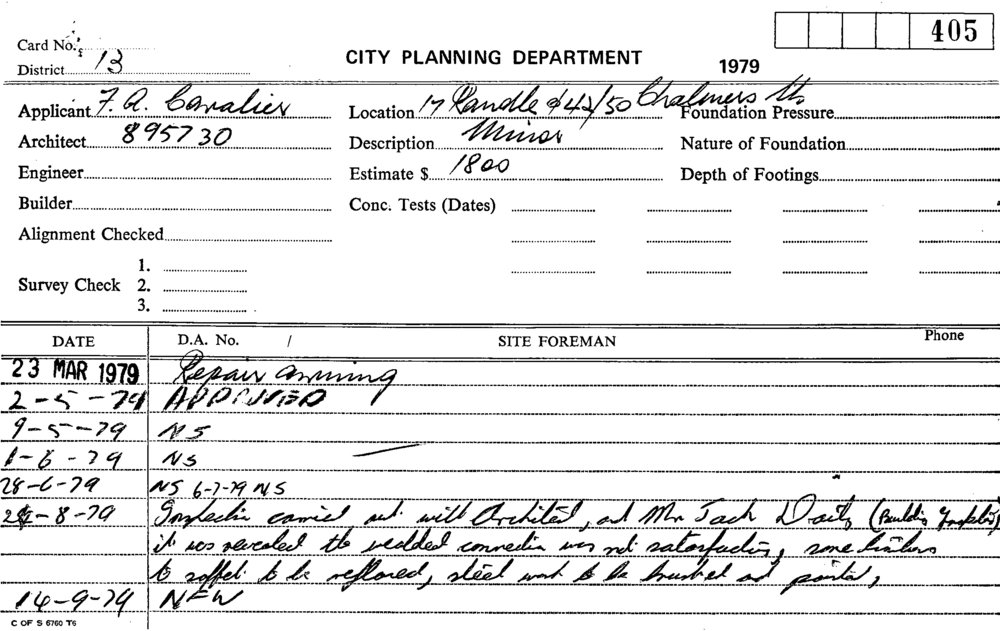 405
Card No.
District 13
CITY PLANNING DEPARTMENT
1979
Applicant F. A. Cavalier
Location 17 Randle & 42/50 Chalmers Sts
Foundation Pressure
Architect 895730
Description Minor
Nature of Foundation
Engineer
Estimate $ 1800
Depth of Footings
Builder
Conc. Tests (Dates)
Alignment Checked
1.
Survey Check 2.
3.
DATE D.A. No. / SITE FOREMAN Phone
23 MAR 1979 Repair awning
2-5-79 APPROVED
9-5-79 NS
1-6-79 NS
28-6-79 NS 6-7-79 NS
-8-79 Inspection carried out with Architect, and Mr Jack (Building Inspector),
it was revealed the welded connection was not satisfactory, some timbers
to soffet to be replaced, steel work to be brushed and painted,
14-9-79 NFW
C OF S 6760 T6